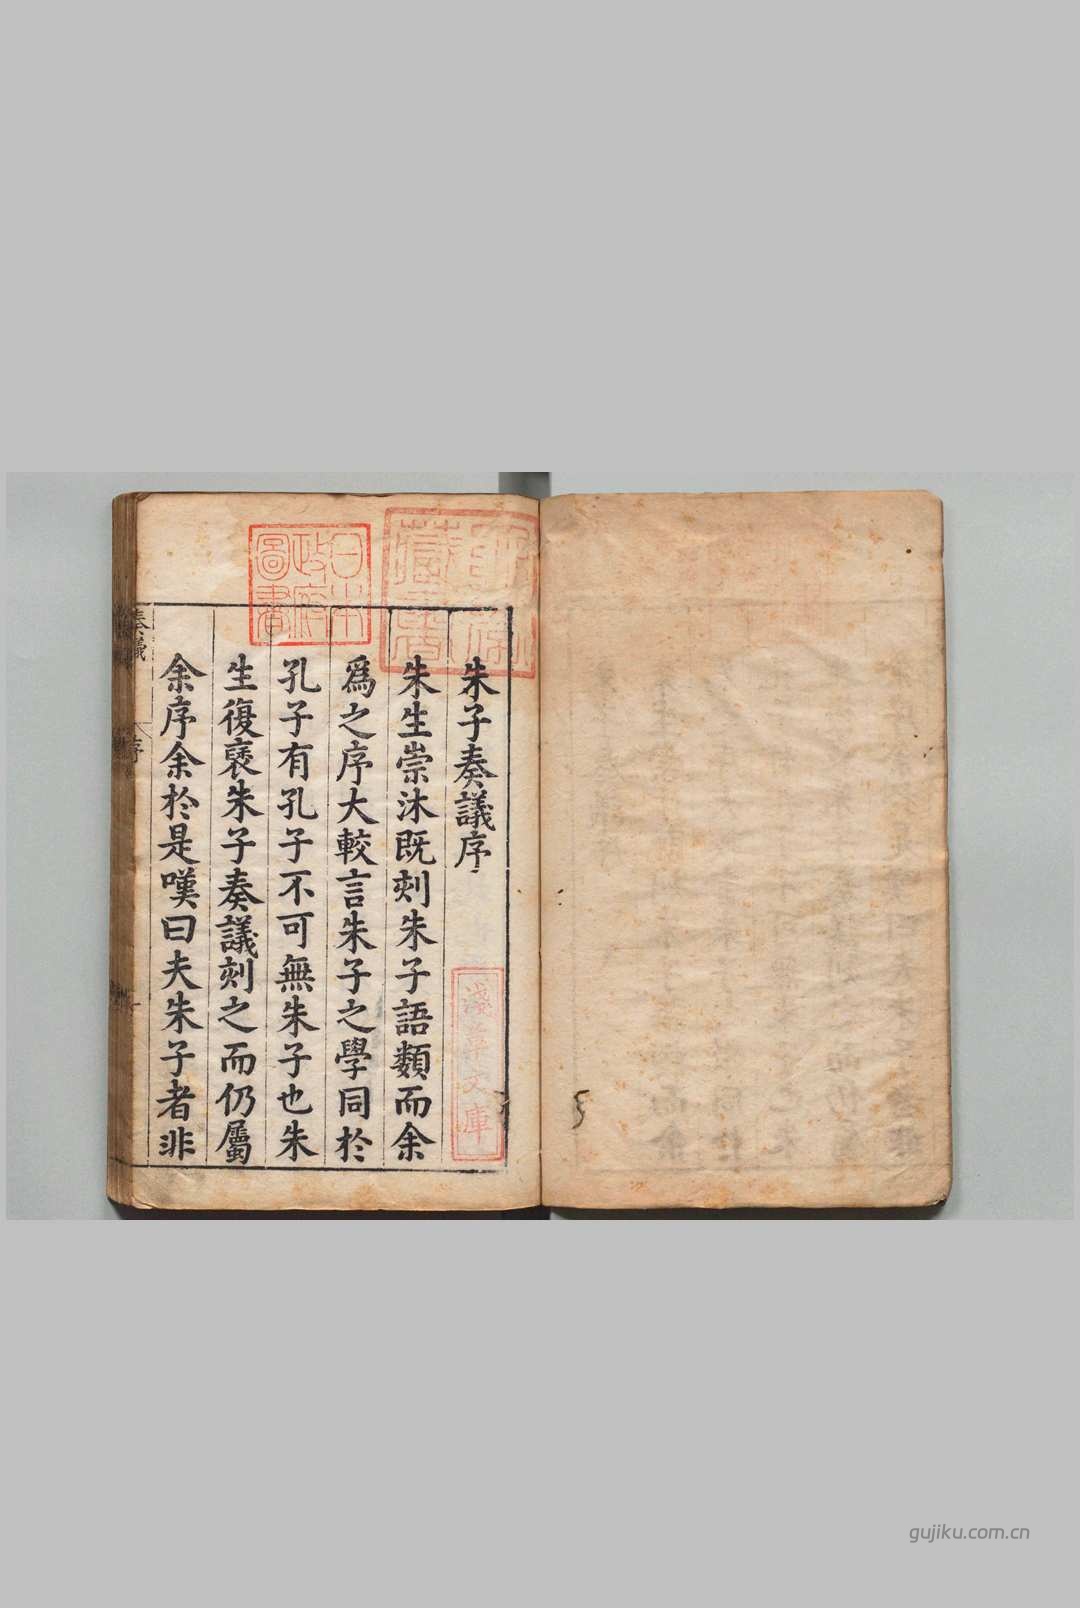 朱子奏議序
朱生崇沐既刻朱子語類而余
爲之序大較言朱子之學同於
孔子有孔子不可無朱子也朱
生復裒朱子奏議刻之而仍屬
余序余於是嘆曰夫朱子者非
奏議
序
日本
政府
圖書
淺草文庫
gujiku.com.cn